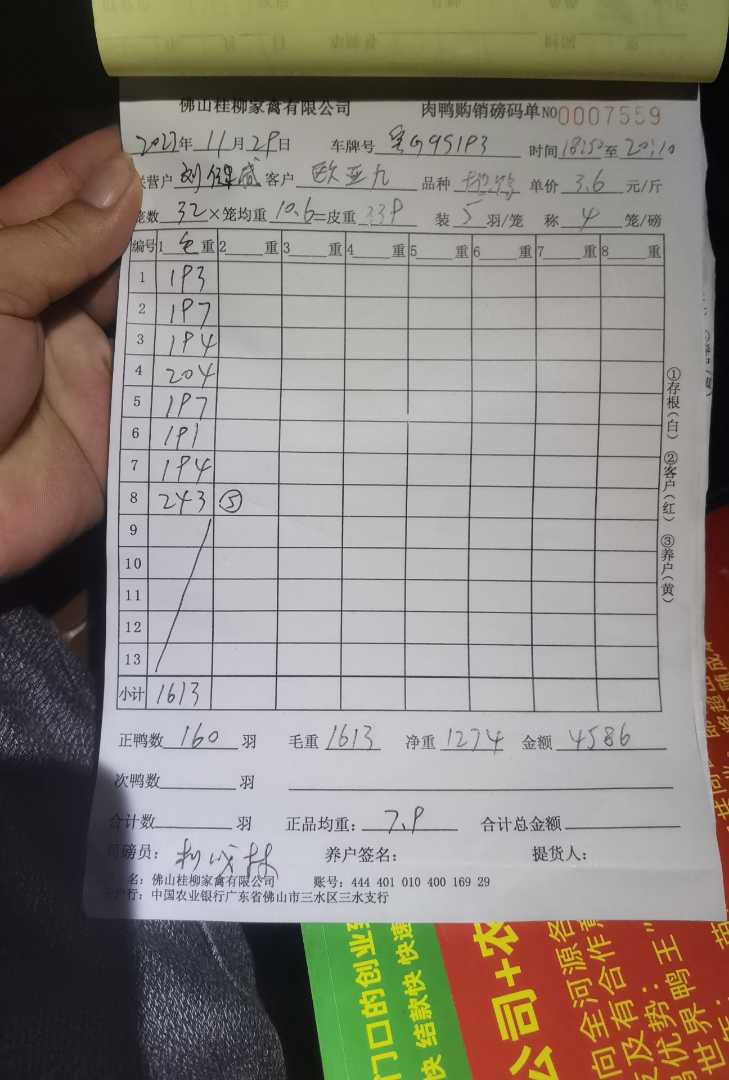 佛山桂柳家禽有限公司 肉鸭购销磅码单 NO 0007559
2023年 11月 29日 车牌号 粤G95193 时间 18:50 至 20:10
营户 刘 客户 欧亚九 品种 单价 3.6 元/斤
笼数 32 ×笼均重 10.6 =皮重 339 装 5 羽/笼 称 4 笼/磅
编号 1 毛 重 2 重 3 重 4 重 5 重 6 重 7 重 8 重
1 193
2 197
3 194
4 204
5 197
6 191
7 194
8 243 ⑤
9
10
11
12
13
小计 1613
①存根(白) ②客户(红) ③养户(黄)
正鸭数 160 羽 毛重 1613 净重 1274 金额 4586
次鸭数 羽
合计数 羽 正品均重: 7.9 合计总金额
司磅员: 养户签名: 提货人:
名: 佛山桂柳家禽有限公司 账号: 444 401 010 400 169 29
户行: 中国农业银行广东省佛山市三水区三水支行
门口的创业
快 结款快 快速
公司+农
向全河源
及有合作
及势:
优界鸭王"